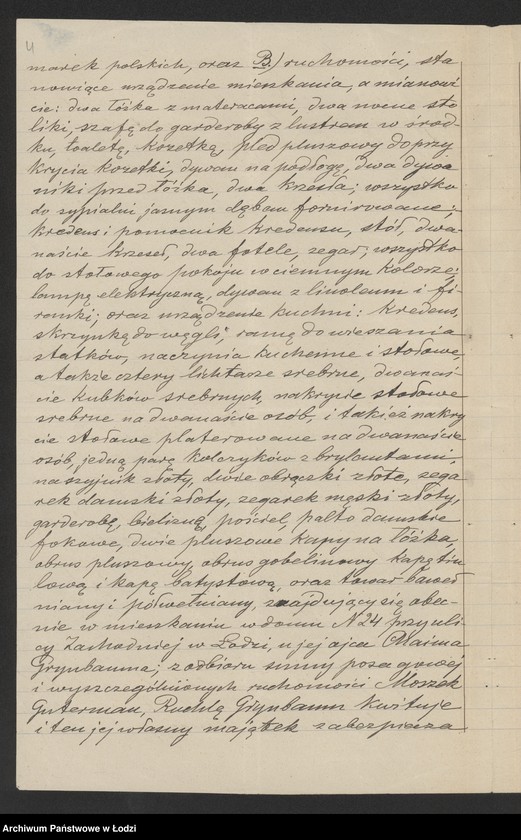 4
marek polskich, oraz B) ruchomości, sta
nowiące urządzenie mieszkania, a mianowi
cie: dwa łóżka z materacami, dwa nocne sto
liki, szafę do garderoby z lustrem w środ-
ku, toaletę, kozetkę, pled pluszowy do przy
krycia kozetki, dywan na podłogę, dwa dywa
niki przed łóżka, dwa krzesła; wszystko
do sypialni jasnym dębem fornirowane;
kredens i pomocnik kredensu, stół, dwa-
naście krzeseł, dwa fotele, zegar, wszystko
do stołowego pokoju w ciemnym kolorze;
lampę elektryczną, dywan z linoleum i fi-
ranki; oraz urządzenie kuchni: kredens,
skrzynkę do węgli, ramę do wieszania
statków, naczynia kuchenne i stołowe,
a także cztery lichtarze srebrne, dwanaś
cie kubków srebrnych, nakrycie stołowe
srebrne na dwanaście osób, i takież nakry
cie stołowe platerowane na dwanaście
osób, jedną parę kolczyków z brylantami,
naszyjnik złoty, dwie obrączki złote, zega
rek damski złoty, zegarek męski złoty,
garderobę, bieliznę, pościel, palto damskie
fokowe, dwie pluszowe kapy na łóżka,
obrus pluszowy, obrus gobelinowy kapę tiu
lową i kapę batystową, oraz towar baweł
niany i półwełniany, znajdujący się obec-
nie w mieszkaniu w domu N 24 przy uli
cy Zachodniej w Łodzi, u jej ojca Chaima
Grynbauma; z odbioru sumy posagowej
i wyszczególnionych ruchomości Moszek
Guterman, Ruchlę Grynbaum kwituje
i ten jej własny majątek zabezpiecza
Archiwum Państwowe w Łodzi